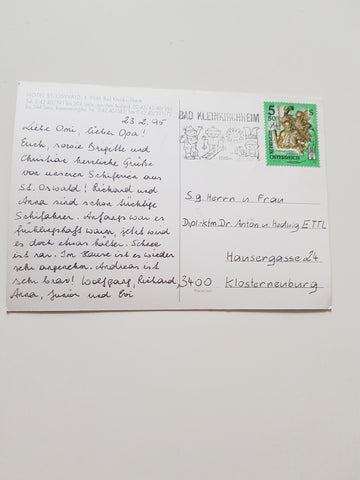 HOTEL ST. OSWALD, A-9546 Bad Kleinkirchheim
23.2.95
Liebe Omi, lieber Opa!
Euch, sowie Brigitte und
Christian herrliche Grüße
von unseren Schiferien aus
St. Oswald! Richard und
Anna sind schon tüchtige
Schifahrer. Anfangs war es
frühlingshaft warm, jetzt wird
es doch etwas kälter. Schnee
ist rar. Im Hause ist es wieder
sehr angenehm. Andreas ist
sehr brav! Wolfgang, Richard,
Anna, Junior und Evi
BAD KLEINKIRCHHEIM
5
50
S
REPUBLIK
ÖSTERREICH
S.g. Herrn u. Frau
Dipl-ktm. Dr. Anton u. Hedwig ETTL
Hausergasse 24
3400 Klosterneuburg